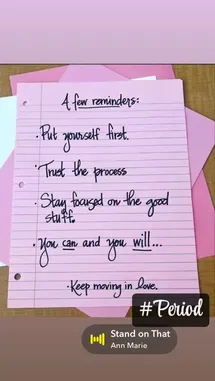 A few reminders:
· Put yourself first.
· Trust the process
· Stay focused on the good
stuff.
· You can and you will...
· Keep moving in love.
#Period
Stand on That
Ann Marie